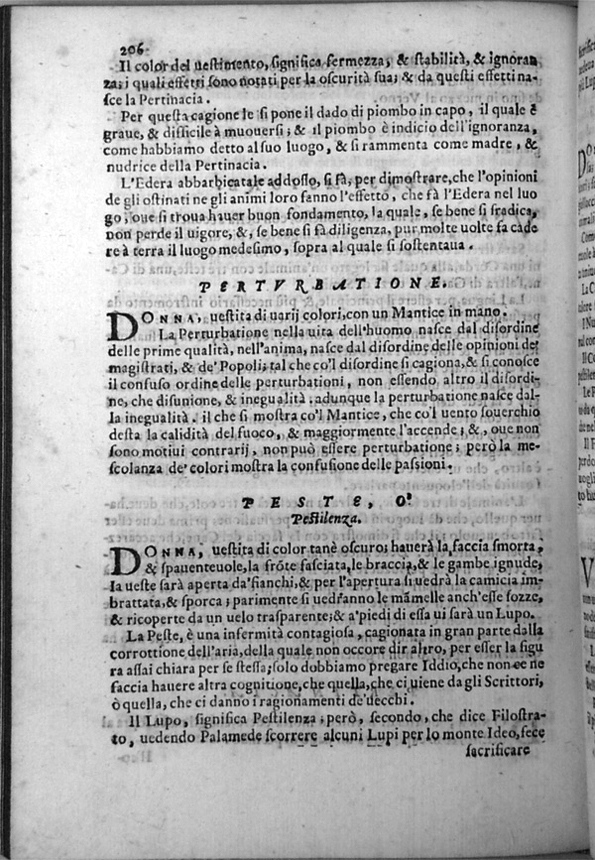 206
Il color del uestimento, significa fermezza; & stabilità, & ignoran
za; i quali effetti sono notati per la oscurità sua; & da questi effetti na-
sce la Pertinacia.
Per questa cagione le si pone il dado di piombo in capo, il quale è
graue, & difficile à muouersi; & il piombo è indicio dell'ignoranza,
come habbiamo detto al suo luogo, & si rammenta come madre, &
nudrice della Pertinacia.
L'Edera abbarbicatale addosso, si fà, per dimostrare, che l'opinioni
de gli ostinati ne gli animi loro fanno l'effetto, che fà l'Edera nel luo
go; oue si troua hauer buon fondamento, la quale, se bene si sradica,
non perde il uigore, &, se bene si fà diligenza, pur molte uolte fa cade
re à terra il luogo medesimo, sopra al quale si sostentaua.
PERTVRBATIONE.
DONNA, uestita di uarij colori, con un Mantice in mano.
La Perturbatione nella uita dell'huomo nasce dal disordine
delle prime qualità, nell'anima, nasce dal disordine delle opinioni de'
magistrati, & de' Popoli; tal che co'l disordine si cagiona, & si conosce
il confuso ordine delle perturbationi, non essendo altro il disordi-
ne, che disunione, & inegualità: adunque la perturbatione nasce dal-
la inegualità. il che si mostra co'l Mantice, che co'l uento souerchio
desta la calidità del fuoco, & maggiormente l'accende; &, oue non
sono motiui contrarij, non può essere perturbatione; però la me-
scolanza de' colori mostra la confusione delle passioni.
PESTE, O'
Pestilenza.
DONNA, uestita di color tanè oscuro; hauerà la faccia smorta,
& spauenteuole, la frōte fasciata, le braccia, & le gambe ignude,
la ueste sarà aperta da' fianchi, & per l'apertura si uedrà la camicia im-
brattata, & sporca; parimente si uedranno le māmelle anch'esse sozze,
& ricoperte da un uelo trasparente; & a' piedi di essa ui sarà un Lupo.
La Peste, è una infermità contagiosa, cagionata in gran parte dalla
corrottione dell'aria, della quale non occore dir altro, per esser la figu
ra assai chiara per se stessa; solo dobbiamo pregare Iddio, che non ce ne
faccia hauere altra cognitione, che quella, che ci uiene da gli Scrittori,
ò quella, che ci danno i ragionamenti de' uecchi.
Il Lupo, significa Pestilenza; però, secondo, che dice Filostra-
to, uedendo Palamede scorrere alcuni Lupi per lo monte Ideo, fece
sacrificare